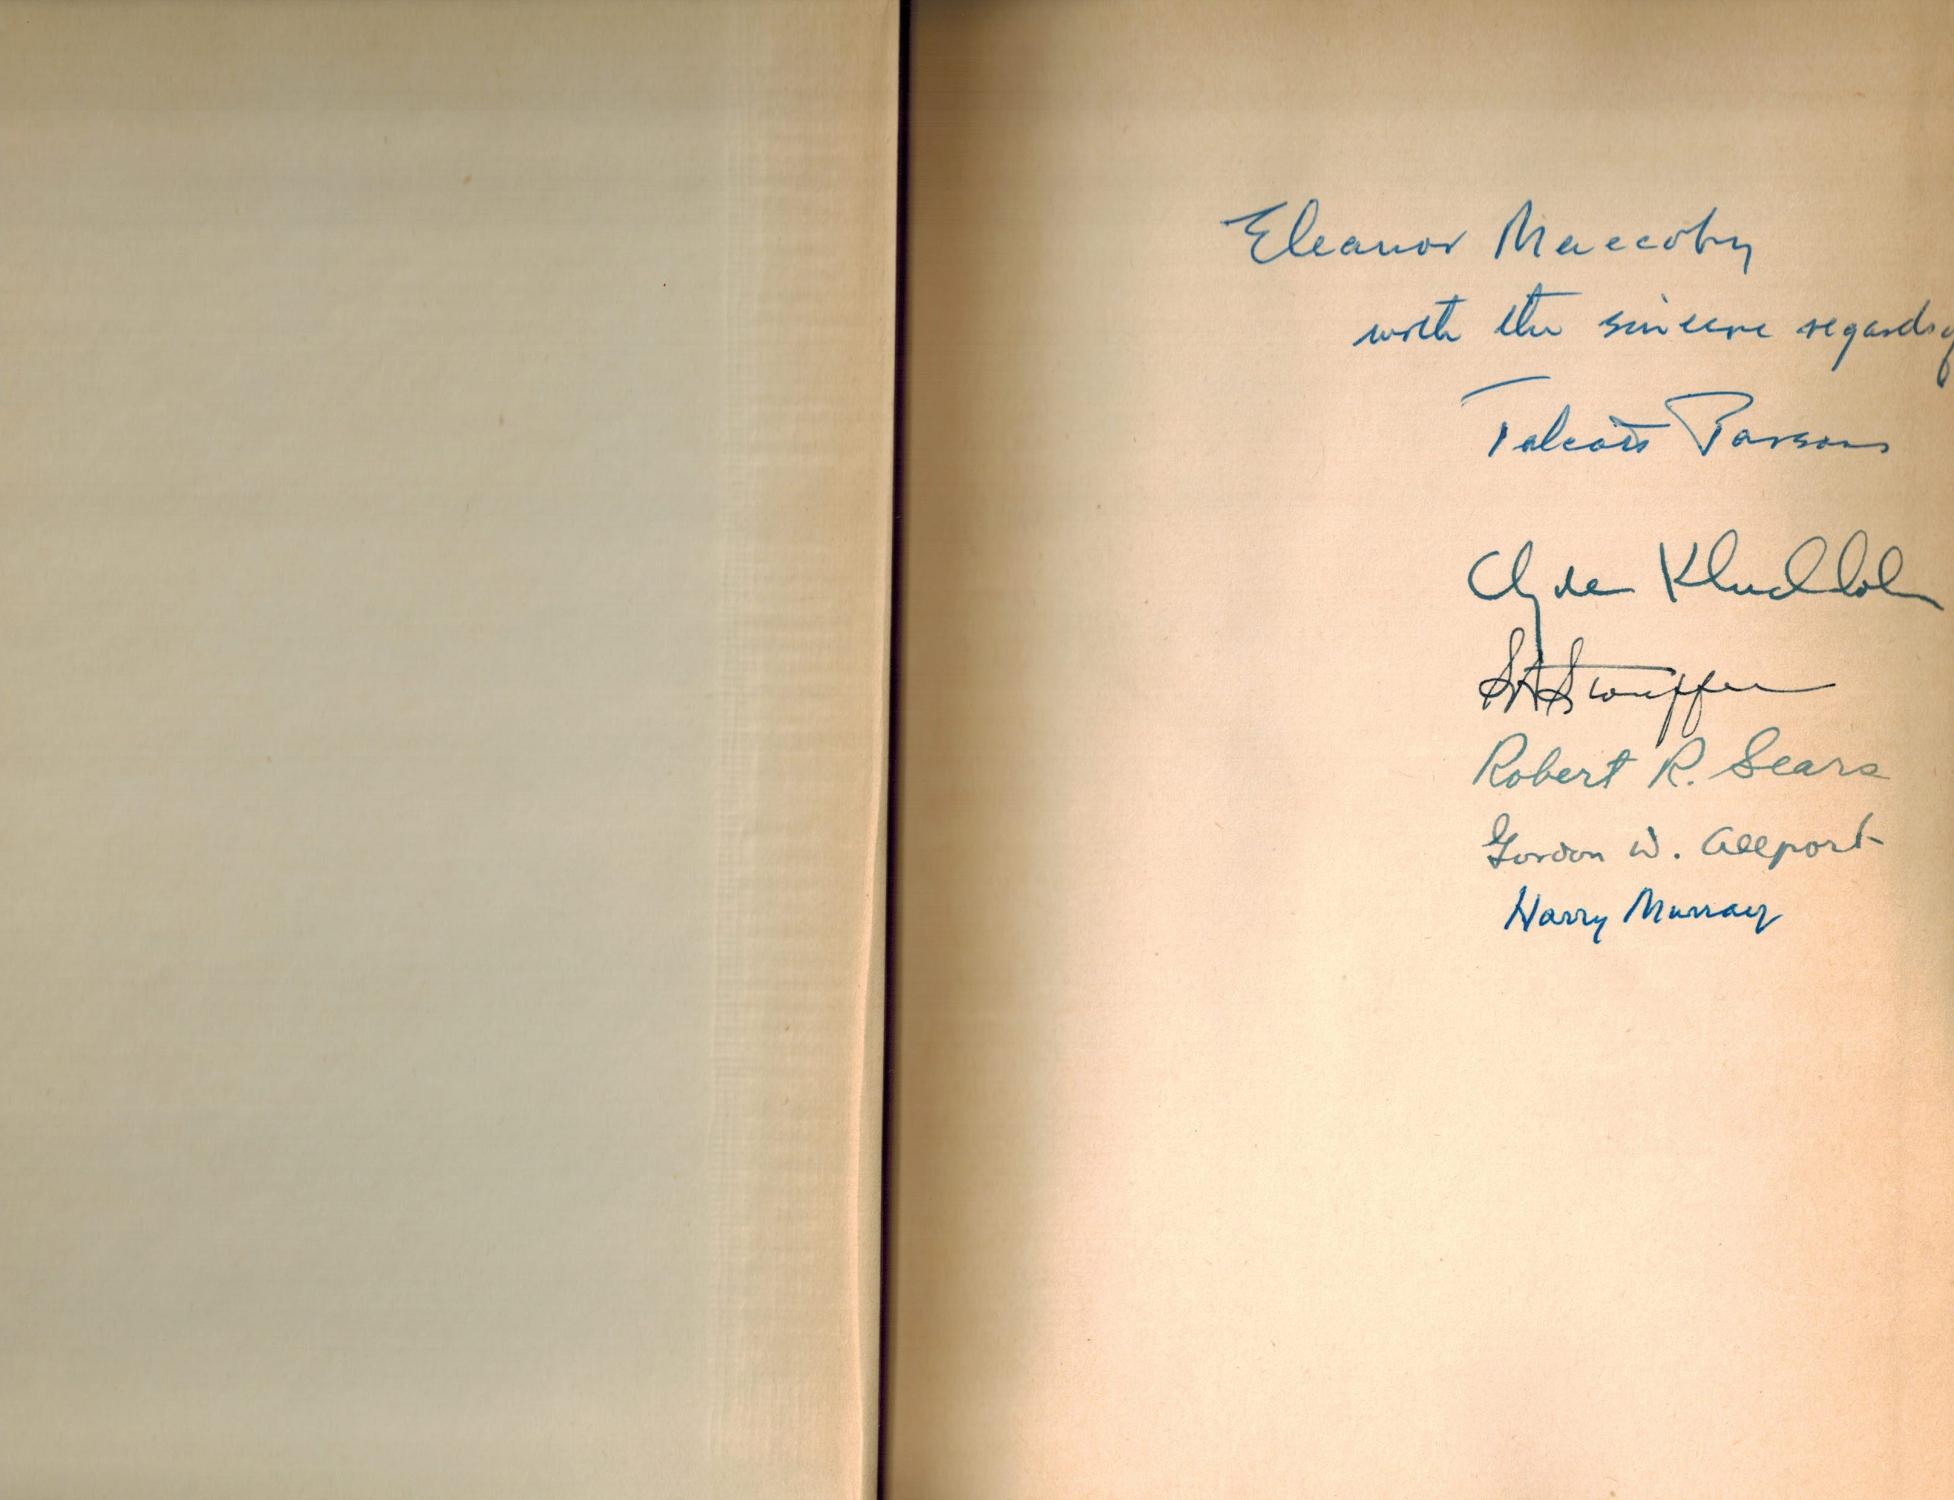 Eleanor Maccoby
with the sincere regards of
Talcott Parsons
Clyde Kluckhohn
SA Stouffer
Robert R. Sears
Gordon W. Allport
Harry Murray